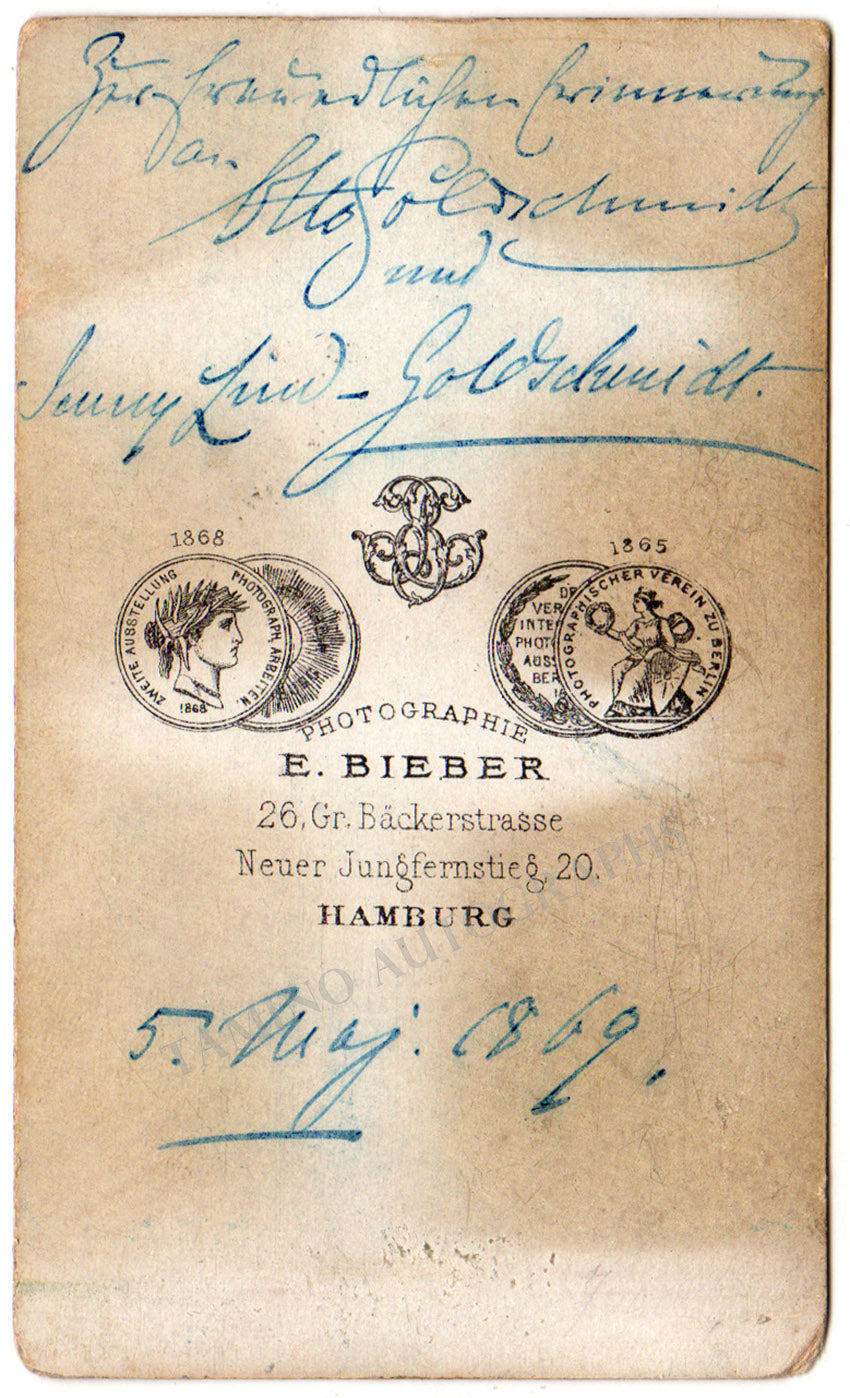 Zur freundlichen Erinnerung
an
Otto Goldschmidt
und
Jenny Lind - Goldschmidt.
1868
1865
ZWEITE AUSSTELLUNG PHOTOGRAPH. ARBEITEN.
1868
DE
VER
INTE
PHOT
AUSS
BER
1
PHOTOGRAPHISCHER VEREIN ZU BERLIN
PHOTOGRAPHIE
E. BIEBER
26, Gr. Bäckerstrasse
Neuer Jungfernstieg, 20.
HAMBURG
TAMINO AUTOGRAPHS
5. Maj. 1869.